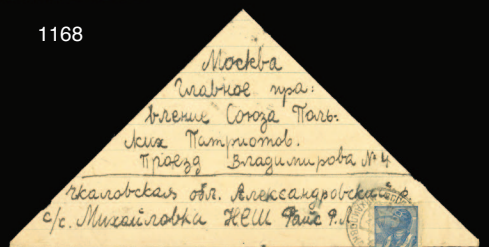 1168
Москва
Главное пра:
вление Союза Поль:
ских Патриотов.
Проезд Владимирова № 4
Чкаловская обл. Александровский р.
с/с. Михайловка НСШ Файс Р.Л.